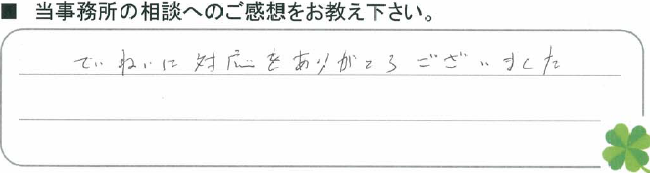 ■ 当事務所の相談へのご感想をお教え下さい。
ていねいに対応をありがとうございました